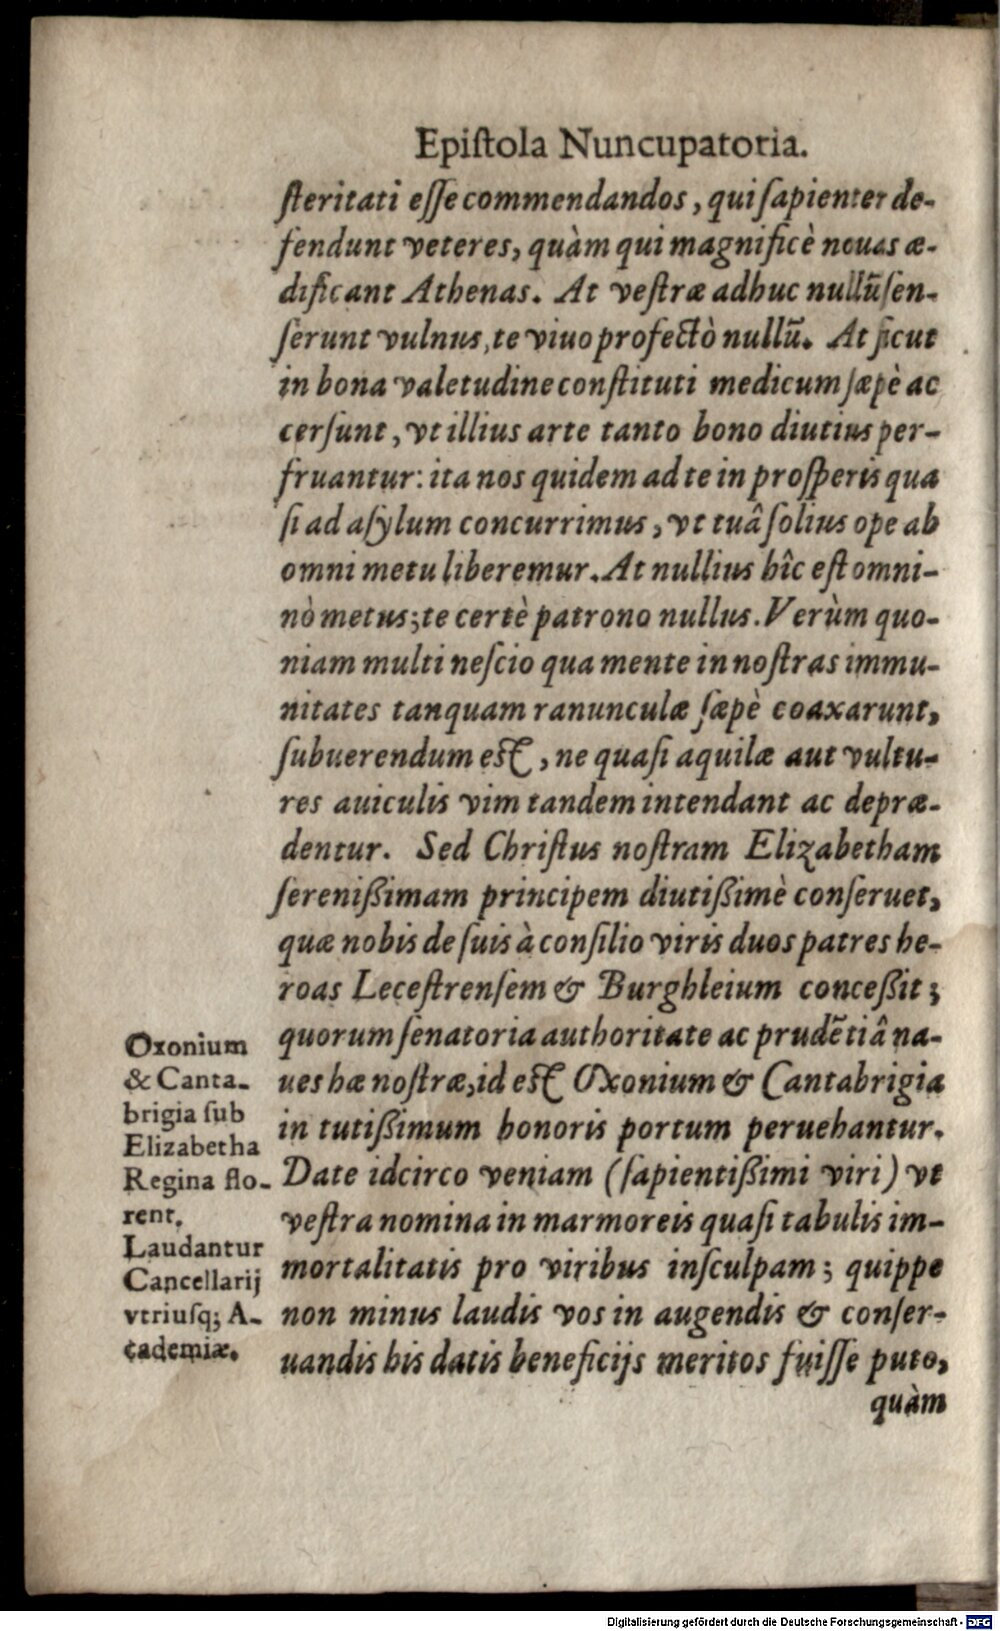 Epiſtola Nuncupatoria.
ſteritati eſſe commendandos, qui ſapienter de-
fendunt veteres, quàm qui magnificè nouas æ-
dificant Athenas. At veſtræ adhuc nullũ ſen-
ſerunt vulnus, te viuo profectò nullũ. At ſicut
in bona valetudine conſtituti medicum ſæpè ac
cerſunt, vt illius arte tanto bono diutius per-
fruantur: ita nos quidem ad te in proſperis qua
ſi ad aſylum concurrimus, vt tuâ ſolius ope ab
omni metu liberemur. At nullius hîc eſt omni-
nò metus; te certè patrono nullus. Verùm quo-
niam multi neſcio qua mente in noſtras immu-
nitates tanquam ranunculæ ſæpè coaxarunt,
ſubuerendum eſt, ne quaſi aquilæ aut vultu-
res auiculis vim tandem intendant ac depræ-
dentur. Sed Chriſtus noſtram Elizabetham
ſereniſſimam principem diutiſſimè conſeruet,
quæ nobis de ſuis à conſilio viris duos patres he-
roas Leceſtrenſem & Burghleium conceſſit;
quorum ſenatoria authoritate ac prudẽtiâ na-
ues hæ noſtræ, id eſt Oxonium & Cantabrigia
in tutiſſimum honoris portum peruehantur.
Date idcirco veniam (ſapientiſſimi viri) vt
veſtra nomina in marmoreis quaſi tabulis im-
mortalitatis pro viribus inſculpam; quippe
non minus laudis vos in augendis & conſer-
uandis his datis beneficijs meritos fuiſſe puto,
quàm
Oxonium
& Canta-
brigia ſub
Elizabetha
Regina flo-
rent.
Laudantur
Cancellarij
vtriuſq; A-
cademiæ.
Digitalisierung gefördert durch die Deutsche Forschungsgemeinschaft - DFG